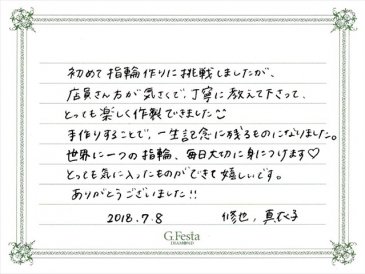 初めて指輪作りに挑戦しましたが、
店員さん方が気さくで、丁寧に教えて下さって、
とっても楽しく作製できました☺
手作りすることで、一生記念に残るものになりました。
世界に一つの指輪、毎日大切に身につけます♡
とっても気に入ったものができて嬉しいです。
ありがとうございました!!
2018.7.8 修也, 真衣子
G.Festa
DIAMOND